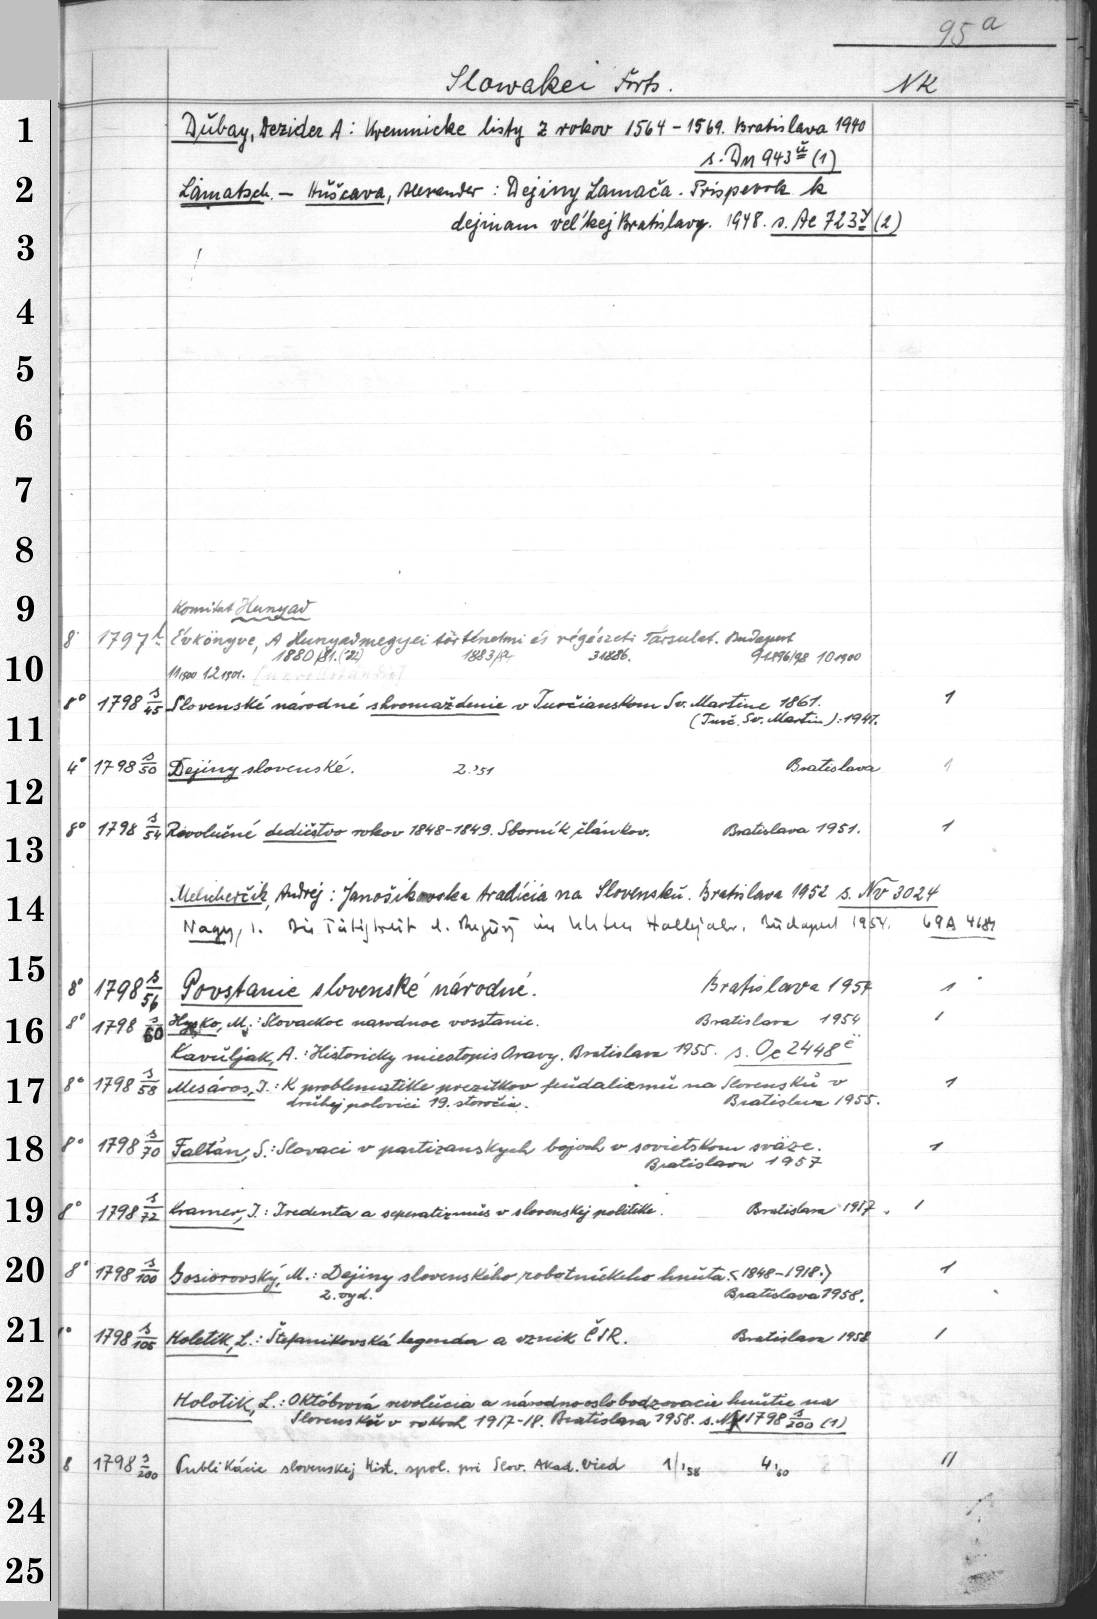 95 a
Slowakei Forts. NK
1
Dŭbay, Dezider A: Kremnicke listy z rokov 1564-1569. Bratislava 1940
s. Dn 943 ü (1)
2
Lamatsch. - Hŭščava, Alexander: Dejiny Lamača. Príspevok k
dejinam vel'kej Bratislavy. 1948. s. Ae 723 y (2)
3
4
5
6
7
8
9
Komitat Hunyad
8° 1797 Évkönyve, A Hunyadmegyei történelmi és régészeti Társulat. Budapest
1880/81.(82) 1883/4 3 1886. 9 1896/98 10 1900
10
11 1900 12 1901.
8° 1798 s/45 Slovenské národné shromaždenie v Turčianskom Sv. Martine 1861. 1
(Turč. Sv. Martin): 1941.
11
4° 1798 s/50 Dejiny slovenské. 2. '51 Bratislava 1
12
8° 1798 s/54 Revolučné dedičstvo rokov 1848-1849. Sborník článkov. Bratislava 1951. 1
13
Melicherčík, Andrej: Janošikovska tradícia na Slovenskŭ. Bratislava 1952 s. Nv 3024
14
Nagy, I. Die Tätigkeit d. im letzten Halbjahr. Bŭdapest 1954. 69A 4684
15
8° 1798 s/56 Povstanie slovenské národné. Bratislava 1957 1
8° 1798 s/60 Hysko, M.: Slovackoe narodnoe vosstanie. Bratislava 1954 1
16
Kavŭljak, A.: Historicky miestopis Oravy. Bratislava 1955. s. Oe 2448 ë
17
8° 1798 s/58 Mesároš, J.: K problematike prezitkov feŭdalizmŭ na Slovenskŭ v 1
drŭhej polovici 19. storočia. Bratislava 1955.
18
8° 1798 s/70 Faltán, S.: Slovaci v partizanskych bojoch v sovietskom sväze. 1
Bratislava 1957
19
8° 1798 s/72 Kramer, J.: Iredenta a seperatizmŭs v slovenskej politike. Bratislava 1957. 1
20
8° 1798 s/100 Gosiorovský, M.: Dejiny slovenského robotníckeho hnŭtia <1848-1918.> 1
2. vyd. Bratislava 1958.
21
1798 s/105 Holotik, L.: Štefanikovská legenda a vznik ČSR. Bratislava 1958 1
22
Holotik, L.: Októbrová revolŭcia a národnooslobodzovacie hnŭtie na
Slovenskŭ v rokoch 1917-18. Bratislava 1958. s. 1798 s/200 (1)
23
8 1798 s/200 Publikácie slovenskej hist. spol. pri Slov. Akad. vied 1/ '58 4 '60 11
24
25